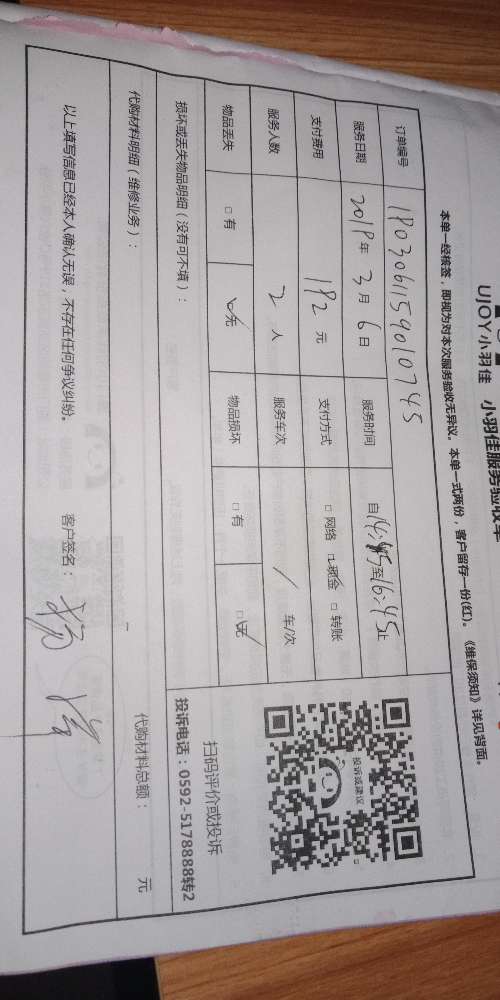 UJOY小羽佳 小羽佳服务验收单
本单一经核签，即视为对本次服务验收无异议。本单一式两份，客户留存一份(红)。《维保须知》详见背面。
订单编号 1803061159010745
服务日期 2018年3月6日 服务时间 自14:45至16:45止
支付费用 182元 支付方式 □网络 ☑现金 □转账
服务人数 2人 服务车次 / 车/次
物品丢失 □有 ☑无 物品损坏 □有 ☑无
损坏或丢失物品明细（没有可不填）：
投诉或建议
扫码评价或投诉
投诉电话：0592-5178888转2
代购材料明细（维修业务）：
代购材料总额： 元
以上填写信息已经本人确认无误，不存在任何争议纠纷。 客户签名：